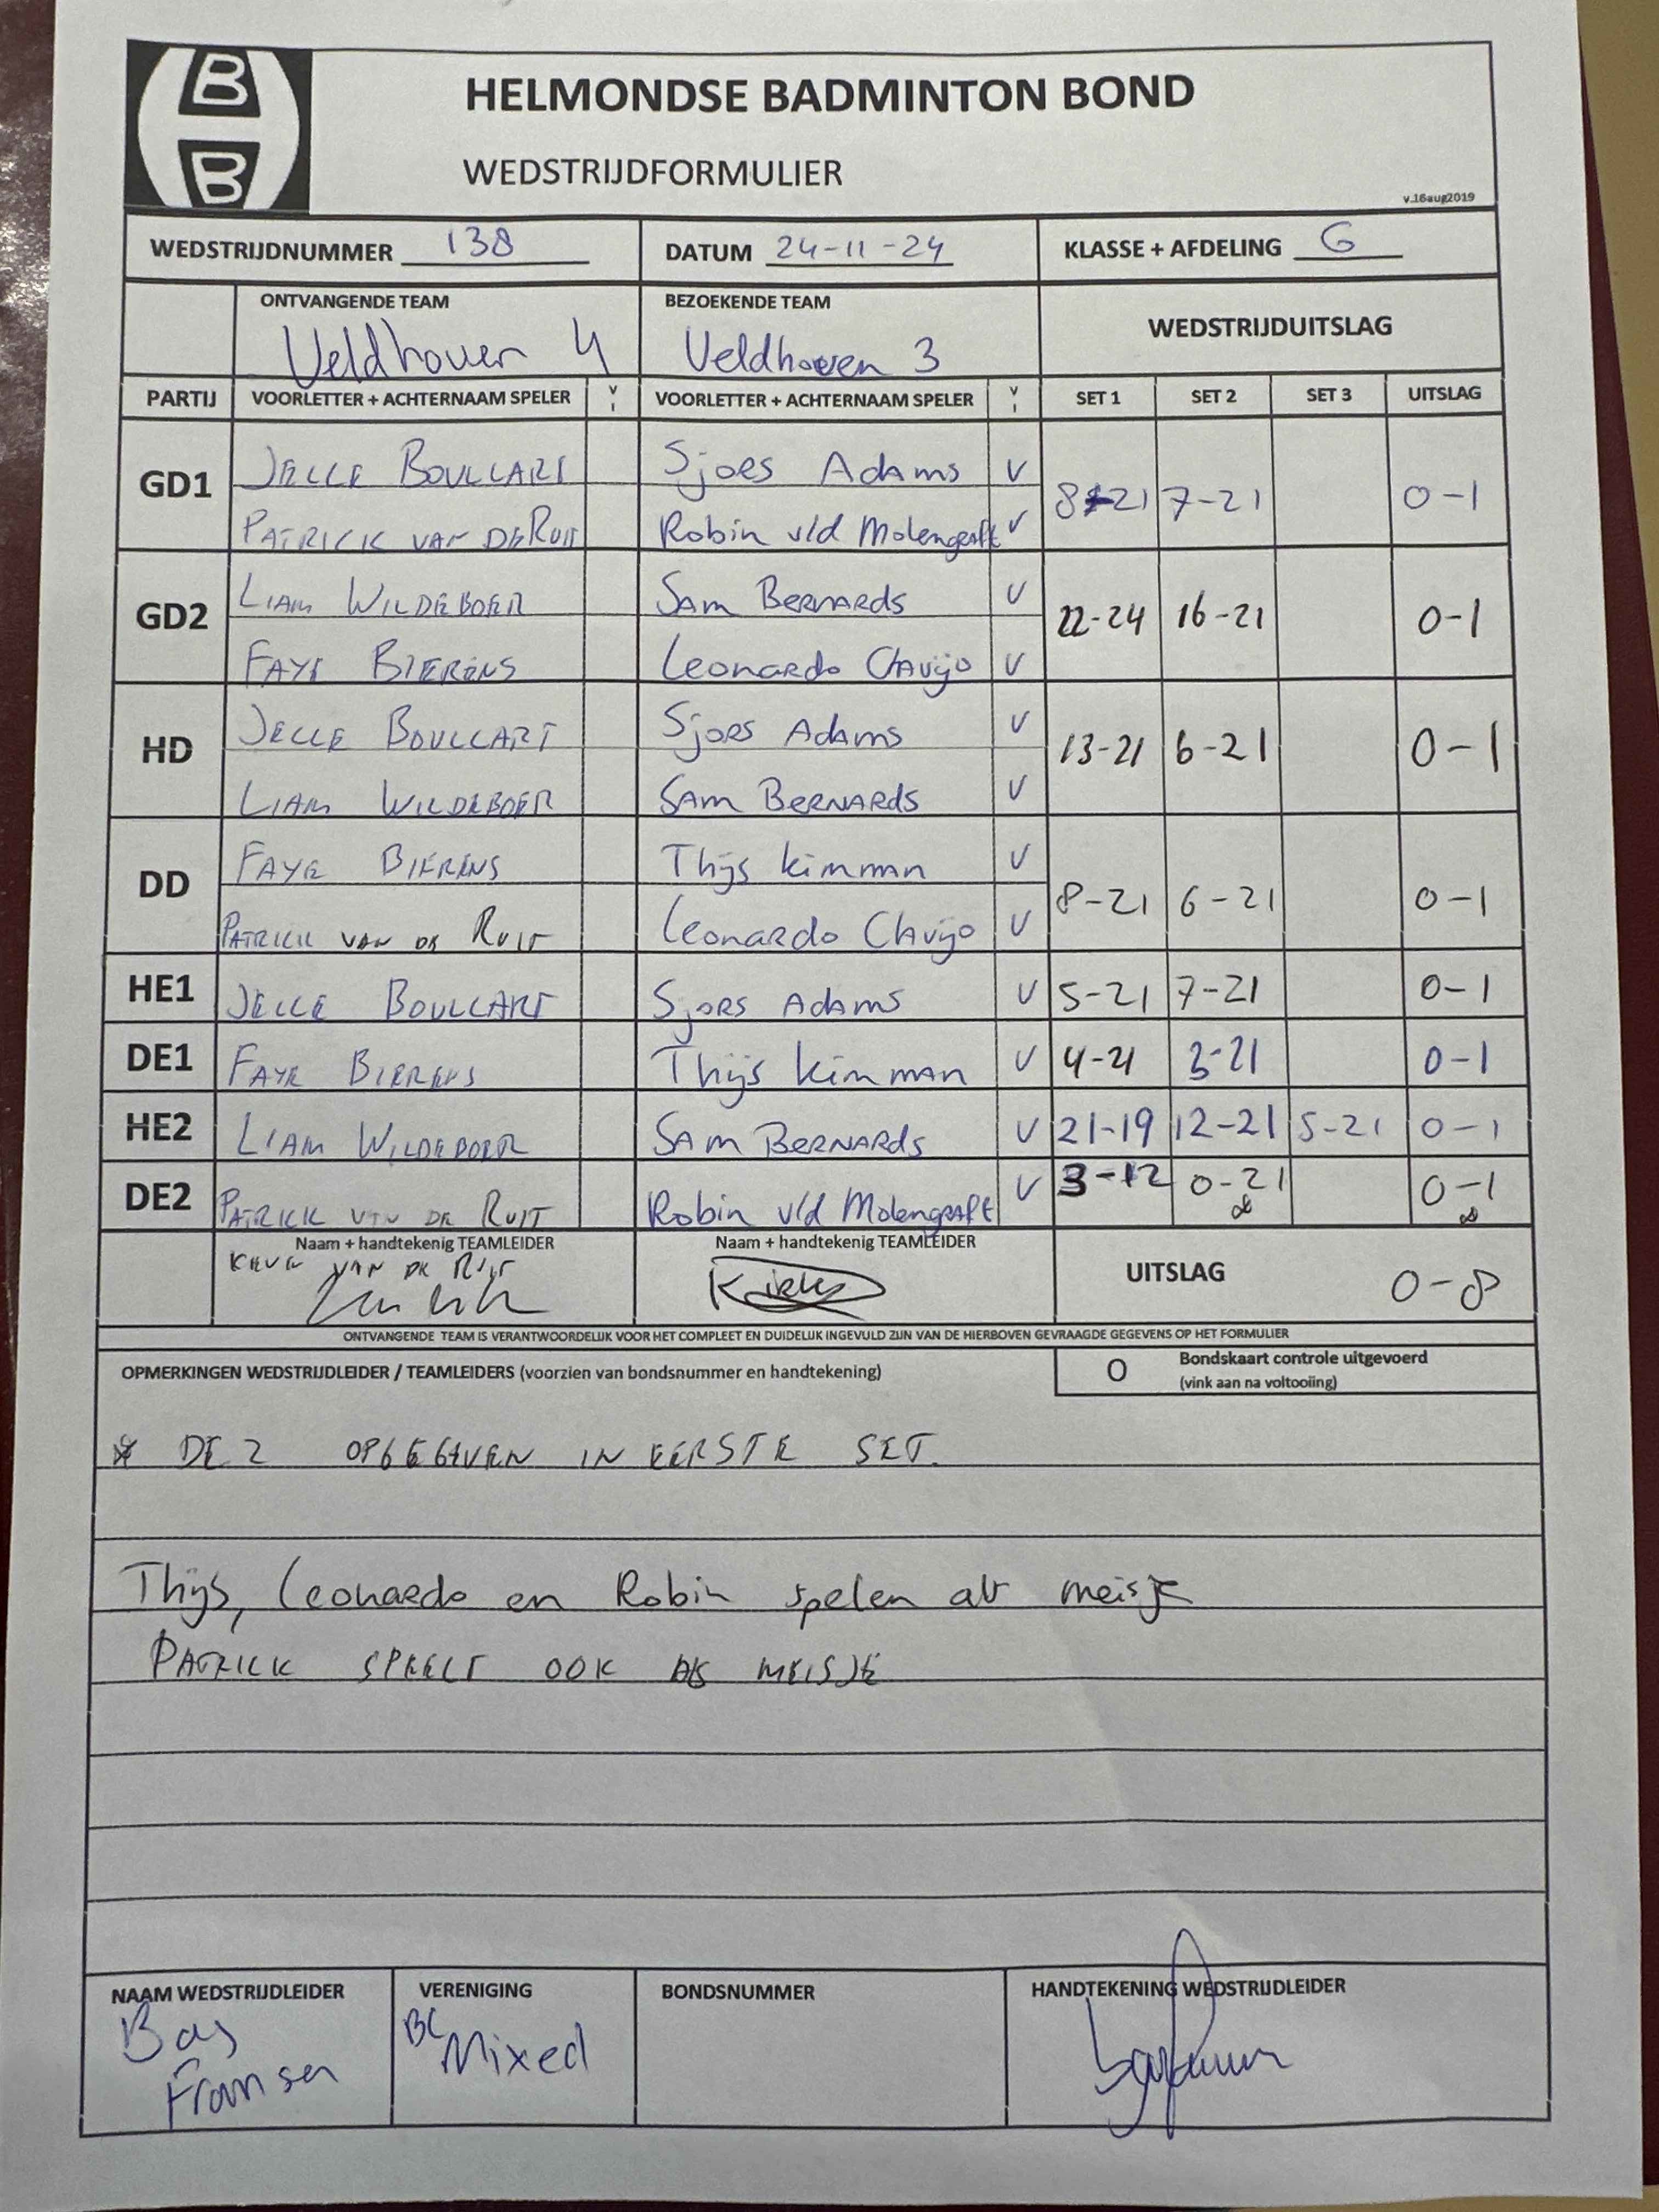 B
B
HELMONDSE BADMINTON BOND
WEDSTRIJDFORMULIER
v.16aug2019
WEDSTRIJDNUMMER 138 DATUM 24-11-24 KLASSE + AFDELING G
ONTVANGENDE TEAM BEZOEKENDE TEAM WEDSTRIJDUITSLAG
Veldhoven 4 Veldhoven 3
PARTIJ VOORLETTER + ACHTERNAAM SPELER V VOORLETTER + ACHTERNAAM SPELER V SET 1 SET 2 SET 3 UITSLAG
GD1 JELLE BOULLART Sjors Adams V 8-21 7-21 0-1
PATRICK VAN DE RUIT Robin v/d Molengraft V
GD2 LIAM WILDEBOER Sam Bernards V 22-24 16-21 0-1
FAYE BIERENS Leonardo Clavijo V
HD JELLE BOULLART Sjors Adams V 13-21 6-21 0-1
LIAM WILDEBOER Sam Bernards V
DD FAYE BIERENS Thijs Kimman V 8-21 6-21 0-1
PATRICK VAN DE RUIT Leonardo Clavijo V
HE1 JELLE BOULLART Sjors Adams V 5-21 7-21 0-1
DE1 FAYE BIERENS Thijs Kimman V 4-21 3-21 0-1
HE2 LIAM WILDEBOER Sam Bernards V 21-19 12-21 5-21 0-1
DE2 PATRICK VAN DE RUIT Robin v/d Molengraft V 3-12 0-21 0-1
Naam + handtekenig TEAMLEIDER Naam + handtekenig TEAMLEIDER UITSLAG 0-8
VAN DE RUIT
ONTVANGENDE TEAM IS VERANTWOORDELIJK VOOR HET COMPLEET EN DUIDELIJK INGEVULD ZIJN VAN DE HIERBOVEN GEVRAAGDE GEGEVENS OP HET FORMULIER
OPMERKINGEN WEDSTRIJDLEIDER / TEAMLEIDERS (voorzien van bondsnummer en handtekening) O Bondskaart controle uitgevoerd
(vink aan na voltooiing)
* DE2 OPGEGEVEN IN EERSTE SET.
Thijs, Leonardo en Robin spelen als meisje
PATRICK SPEELT OOK ALS MEISJE
NAAM WEDSTRIJDLEIDER VERENIGING BONDSNUMMER HANDTEKENING WEDSTRIJDLEIDER
Bas BC Mixed
Fransen